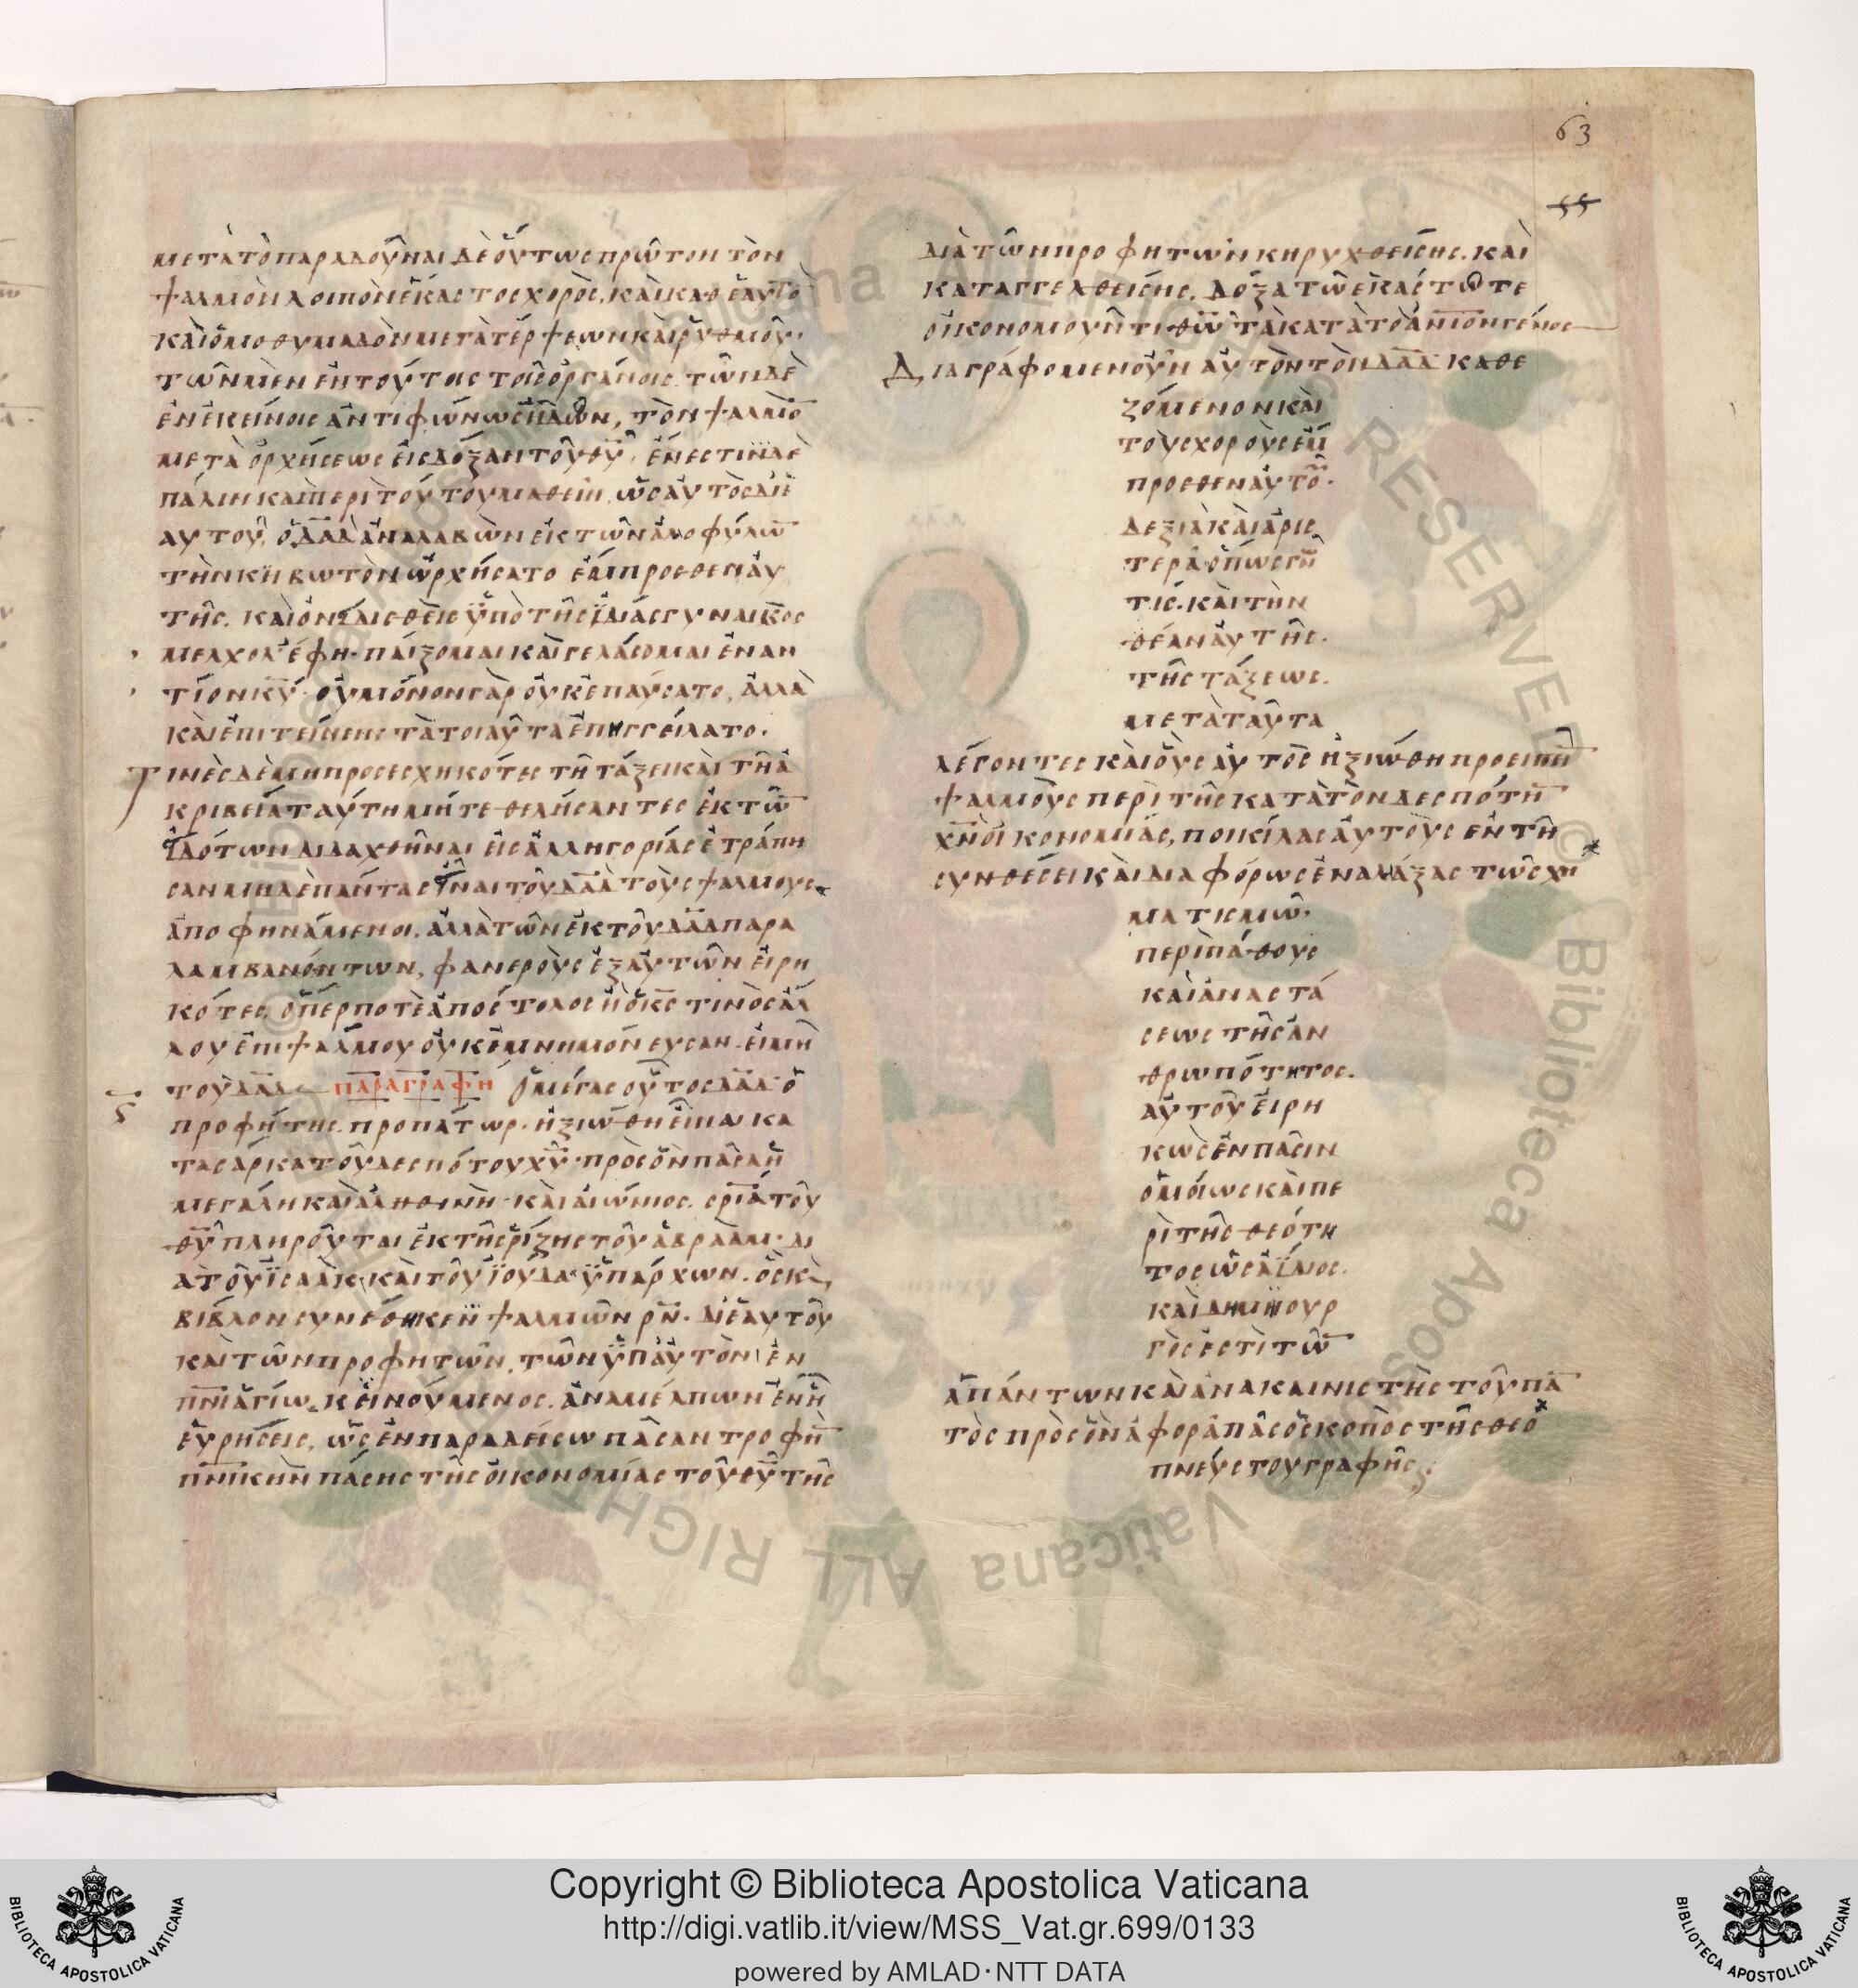 63
55
μετὰ τὸ παραδοῦναι δὲ οὕτως πρῶτον τὸν
ψαλμὸν λοιπὸν ἕκαστος χορὸς, καὶ καθ ἑαυτὸ
καὶ ὁμοθυμαδὸν μετὰ τέρψεων καὶ ῥυθμοῦ,
τῶν μὲν ἐν τούτοις τοῖς ὀργάνοις τῶν δὲ
ἐν ἐκείνοις ἀντιφώνως ᾖδον, τὸν ψαλμὸ̅
μετὰ ὀρχήσεως εἰς δόξαν τοῦ θυ̅, ἔνεστιν δὲ
πάλιν καὶ περὶ τούτου μαθεῖν, ὡς αὐτὸς δι
αυτοῦ, ὁ δαδ̅ ἀναλαβὼν ἐκ τῶν ἀλοφύλω̅
τὴν κιβωτὸν ὠρχήσατο ἔμπροσθεν αὐ
τῆς. καὶ ὀνειδισθεὶς ὑπὸ τῆς ἰδίας γυναικὸς
μελχὸλ ἔφη· παίξομαι καὶ γελάσομαι ἐναν
τίον κυ̅· οὐ μόνον γὰρ οὐκ ἐπαύσατο, ἀλλὰ
καὶ ἐπιτείνειν τὰ τοιαῦτα ἐπηγγείλατο.
Τινὲς δὲ μὴ προσεσχηκότες τῇ τάξει καὶ τῇ ἀ
κριβείᾳ ταύτῃ μήτε θελήσαντες ἐκ τῶ̅
εἰδότων διδαχθῆναι εἰς ἀλληγορίας ἐτράπη
σαν μηδὲ πάντας εἶναι τοῦ δαδ̅ τοὺς ψαλμους
ἀποφηνάμενοι. ἀλλὰ τῶν ἐκ τοῦ δαδ̅ παρα
λαμβανόντων, φανεροὺς ἐξ αὐτῶν εἰρη
κότες, ὅπερ ποτὲ ἀπόστολος ἢ ὁ κς̅ τινὸς ἄλ
λου ἐπὶ ψαλμου οὐκ ἐμνημόνευσαν. εἰ μὴ
τοῦ δαδ̅ παραγραφή Ὁ μέγας οὗτος δαδ̅· ὁ
προφήτης. προπάτωρ. ἠξιώθη εἶναι κα
τα σάρκα τοῦ δεσπότου χυ̅· πρὸς ὃν πᾶσα ἡ
μεγάλη καὶ ἀληθινὴ· καὶ αἰώνιος. σρία̅ τοῦ
θυ̅ πληροῦται ἐκ τῆς ῥίζης τοῦ ἀβραὰμ· δι
ὰ τοῦ ἰσαὰκ, καὶ τοῦ ἰούδα ὑπάρχων. ὃς κ(αὶ)
βίβλον συνέθηκεν ψαλμῶν ρν̅· δι ἑαυτοῦ
καὶ τῶν προφητῶν, τῶν ὑπ αὐτὸν ἐν
πνι̅ ἁγίω, κεινούμενος. ἀναμέλπων ἐν ᾗ
εὑρήσεις, ὡς ἐν παραδείσω πᾶσαν τροφὴ̅
πνικὴν̅ πάσης τῆς οἰκονομίας τοῦ θυ̅ τῆς
διὰ τῶν προφητων κηρυχθείσης. καὶ
καταγγελθείσης. δόξα τῶ ἑκάστοτε
οἰκονομουντι θω̅ τὰ κατὰ τὸ ἀνιον̅ γένος
Διαγράφομεν οὖν αὐτὸν τὸν δαδ̅ καθε
ζόμενον καὶ
τοὺς χοροὺς ἔμ
προσθεν αὐτο̅υ.
δεξιὰ καὶ ἀρισ
τερὰ ὅπως γν
τις. καὶ τὴν
θέαν αὐτῆς.
τῆς τάξεως.
μετὰ ταῦτα
λέγοντες καὶ οὓς αὐτὸς ἠξιώθη προειπεῖ̅
ψαλμοὺς περὶ τῆς κατὰ τὸν δεσπότη̅
χν̅ οἰκονομίας, ποικίλας αὐτοὺς ἐν τῆ
συνθέσει καὶ διαφόρως ἐναλλάξας τῶ σχη
ματισμῶ.
περὶ πάθους
καὶ ἀναστά
σεως τῆς ἀν
θρωπότητος.
αὐτοῦ εἰρη
κὼς ἐν πᾶσιν
ὁμοίως καὶ πε
ρὶ τῆς θεότη
τος ὡς ἀΐδιος.
καὶ δημιουρ
γὸς ἐστὶ τῶ̅
ἁπάντων καὶ ἀνακαινιστὴς τοῦ πα̅
τὸς πρὸς ὃν ἀφορᾶ πᾶς ὁ σκοπὸς τῆς θεο
πνεύστου γραφῆς.
Copyright © Biblioteca Apostolica Vaticana
http://digi.vatlib.it/view/MSS_Vat.gr.699/0133
powered by AMLAD·NTT DATA
BIBLIOTECA APOSTOLICA VATICANA
BIBLIOTECA APOSTOLICA VATICANA